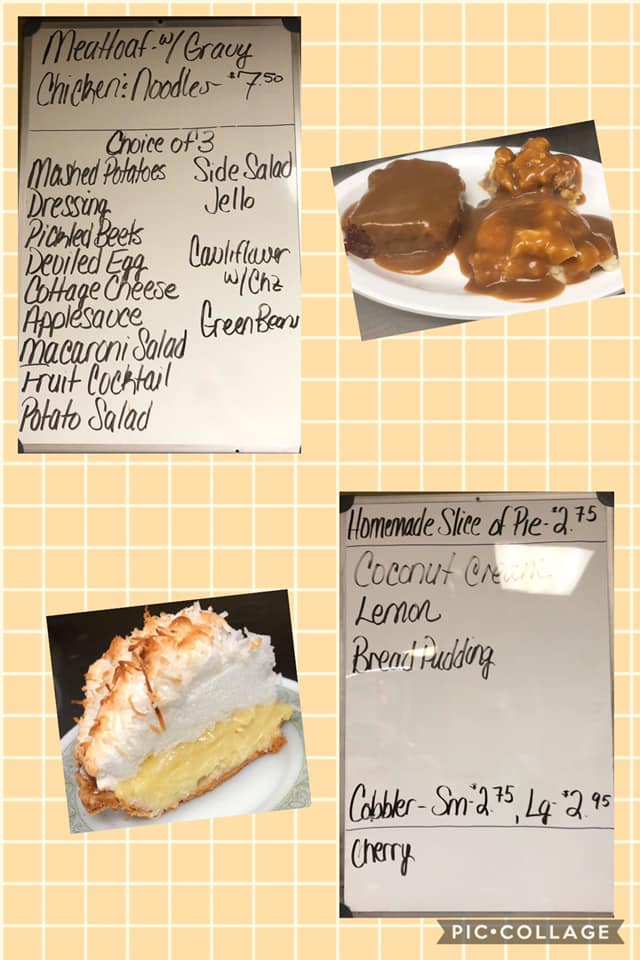 Meatloaf w/ Gravy
Chicken & Noodles $7.50
Choice of 3
Mashed Potatoes
Dressing
Pickled Beets
Deviled Egg
Cottage Cheese
Applesauce
Macaroni Salad
Fruit Cocktail
Potato Salad
Side Salad
Jello
Cauliflower
w/Chz
Green Beans
Homemade Slice of Pie - $2.75
Coconut Cream
Lemon
Bread Pudding
Cobbler - Sm - $2.75, Lg - $2.95
Cherry
PIC•COLLAGE